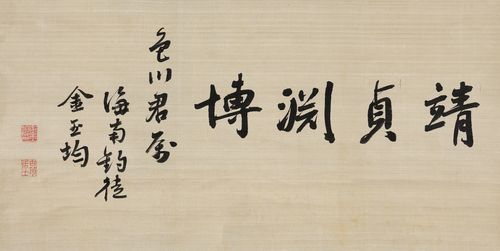 靖貞淵博
色川君属
海南釣徒
金玉均